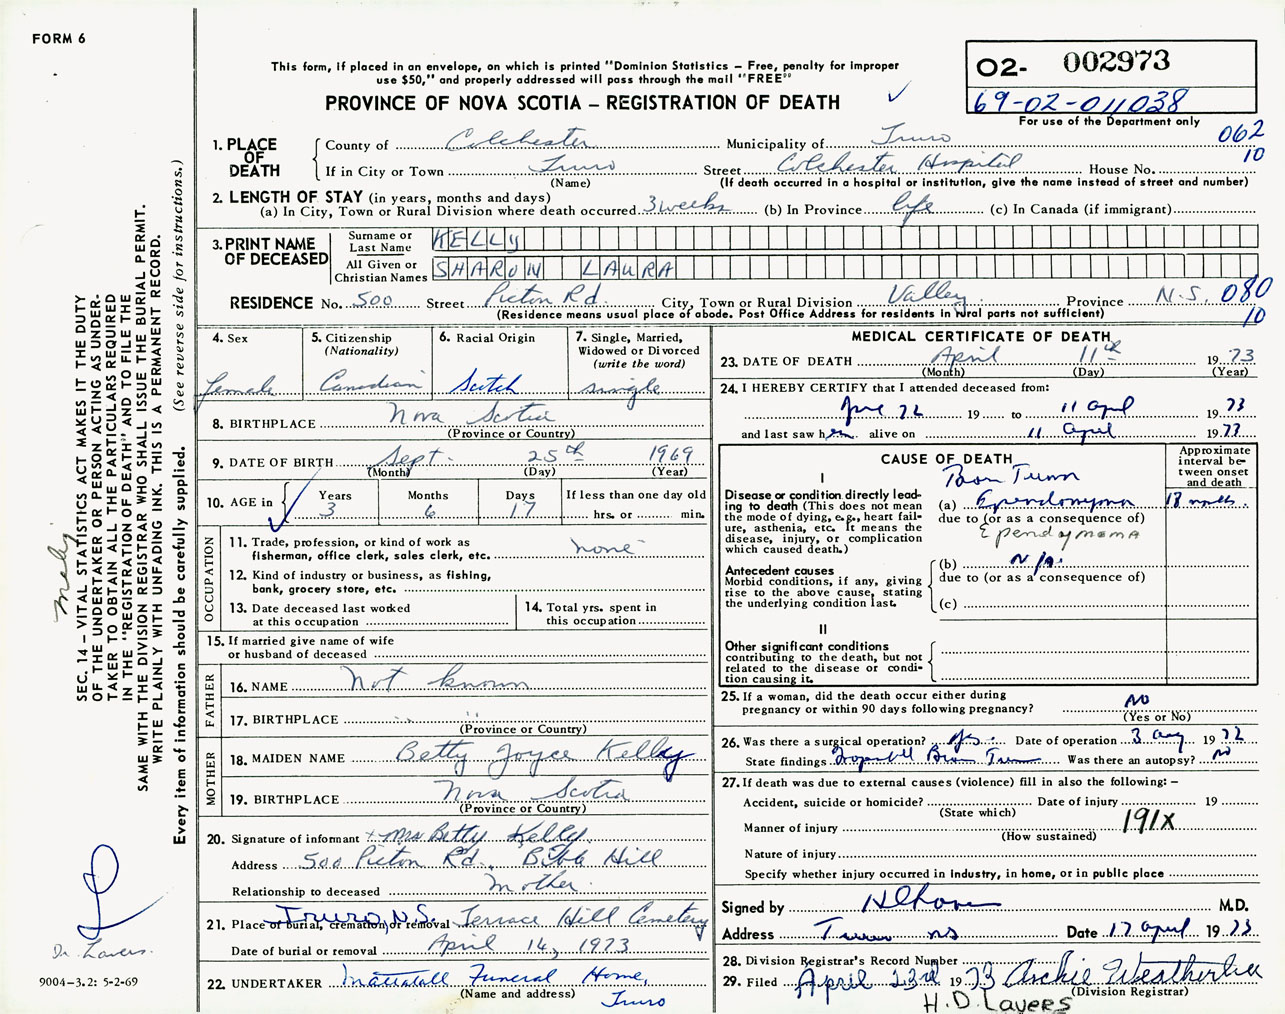 FORM 6
This form, if placed in an envelope, on which is printed "Dominion Statistics – Free, penalty for improper
use $50," and properly addressed will pass through the mail "FREE"
PROVINCE OF NOVA SCOTIA – REGISTRATION OF DEATH
02- 002973
69-02-011038
For use of the Department only
062
10
1. PLACE OF DEATH
County of Colchester Municipality of Truro
If in City or Town Truro Street Colchester Hospital House No.
(Name) (If death occurred in a hospital or institution, give the name instead of street and number)
2. LENGTH OF STAY (in years, months and days)
(a) In City, Town or Rural Division where death occurred 3 weeks (b) In Province life (c) In Canada (if immigrant)
3. PRINT NAME OF DECEASED
Surname or Last Name KELLY
All Given or Christian Names SHARON LAURA
RESIDENCE No. 500 Street Picton Rd. City, Town or Rural Division Valley Province N.S. 080
(Residence means usual place of abode. Post Office Address for residents in rural parts not sufficient) 10
4. Sex female
5. Citizenship (Nationality) Canadian
6. Racial Origin Scotch
7. Single, Married, Widowed or Divorced (write the word) single
8. BIRTHPLACE Nova Scotia
(Province or Country)
9. DATE OF BIRTH Sept. 25th 1969
(Month) (Day) (Year)
10. AGE in Years 3 Months 6 Days 17 If less than one day old hrs. or min.
OCCUPATION
11. Trade, profession, or kind of work as
fisherman, office clerk, sales clerk, etc. none
12. Kind of industry or business, as fishing,
bank, grocery store, etc.
13. Date deceased last worked
at this occupation
14. Total yrs. spent in
this occupation
15. If married give name of wife
or husband of deceased
FATHER
16. NAME Not known
17. BIRTHPLACE "
(Province or Country)
MOTHER
18. MAIDEN NAME Betty Joyce Kelly
19. BIRTHPLACE Nova Scotia
(Province or Country)
20. Signature of informant + Mrs Betty Kelly
Address 500 Picton Rd. Bible Hill
Relationship to deceased Mother
21. Place of burial, cremation or removal Truro, N.S. Terrace Hill Cemetery
Date of burial or removal April 14, 1973
22. UNDERTAKER Mattatall Funeral Home,
(Name and address) Truro
MEDICAL CERTIFICATE OF DEATH
23. DATE OF DEATH April 11th 1973
(Month) (Day) (Year)
24. I HEREBY CERTIFY that I attended deceased from:
72 19 to 11 April 1973
and last saw her alive on 11 April 1973
CAUSE OF DEATH
Approximate interval between onset and death
I
Disease or condition directly leading to death (This does not mean the mode of dying, e.g., heart failure, asthenia, etc. It means the disease, injury, or complication which caused death.)
Brain Tumor
(a) Ependymoma 18 months.
due to (or as a consequence of)
Ependymoma
Antecedent causes
Morbid conditions, if any, giving rise to the above cause, stating the underlying condition last.
(b) N/A.
due to (or as a consequence of)
(c)
II
Other significant conditions
contributing to the death, but not related to the disease or condition causing it.
25. If a woman, did the death occur either during
pregnancy or within 90 days following pregnancy? NO
(Yes or No)
26. Was there a surgical operation? yes. Date of operation 3 Aug 1972
State findings Brain Tumor Was there an autopsy? no
27. If death was due to external causes (violence) fill in also the following: –
Accident, suicide or homicide? Date of injury 19
(State which)
Manner of injury 191X
(How sustained)
Nature of injury
Specify whether injury occurred in industry, in home, or in public place
Signed by M.D.
Address Truro NS Date 17 April 1973
28. Division Registrar's Record Number
29. Filed April 23rd 1973 Archie Weatherbee
(Division Registrar)
H.D. LAVERS
SEC. 14 – VITAL STATISTICS ACT MAKES IT THE DUTY
OF THE UNDERTAKER OR PERSON ACTING AS UNDER-
TAKER TO OBTAIN ALL THE PARTICULARS REQUIRED
IN THE "REGISTRATION OF DEATH" AND TO FILE THE
SAME WITH THE DIVISION REGISTRAR WHO SHALL ISSUE THE BURIAL PERMIT.
WRITE PLAINLY WITH UNFADING INK. THIS IS A PERMANENT RECORD.
Every item of information should be carefully supplied. (See reverse side for instructions.)
Dr. Lavers.
9004-3.2: 5-2-69